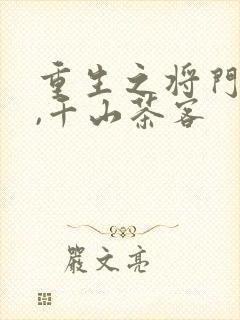 重生之将门
,千山茶客
嚴文亮